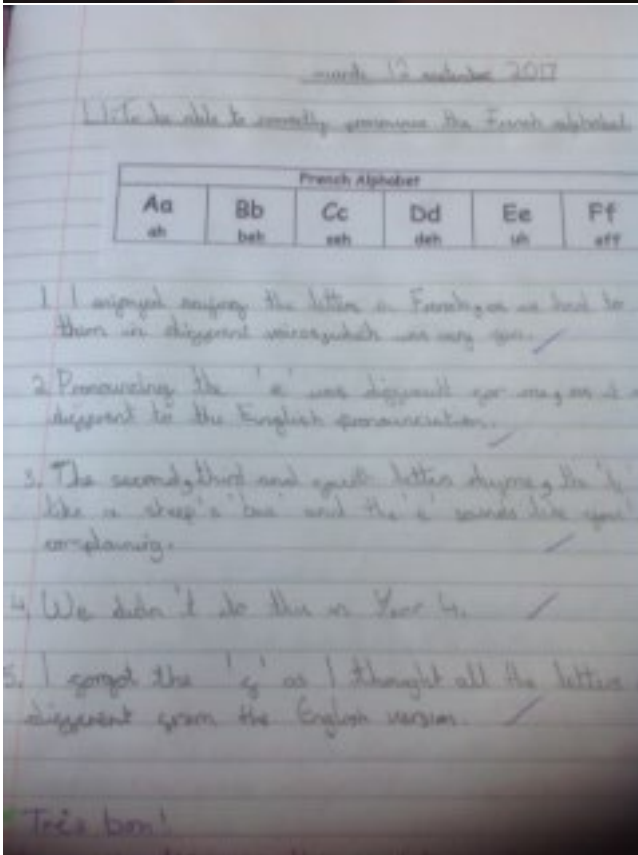 mardi 12 septembre 2017
L.I: To be able to correctly pronounce the French alphabet.
French Alphabet
Aa Bb Cc Dd Ee Ff
ah beh seh deh uh eff
1. I enjoyed saying the letters in French, as we had to
them in different voices, which was very fun.
2. Pronouncing the 'e' was difficult for me, as it
different to the English pronunciation.
3. The second, third and fourth letters rhyme, the 'b'
like a sheep's 'baa' and the 'e' sounds like
complaining.
4. We didn't do this in Year 4.
5. I forgot the 'f' as I thought all the letters
different from the English version.
Très bon!